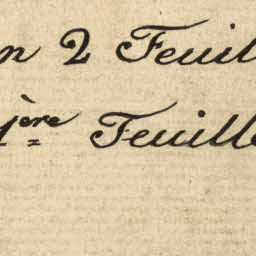 n 2 Feuil
1ère Feuille